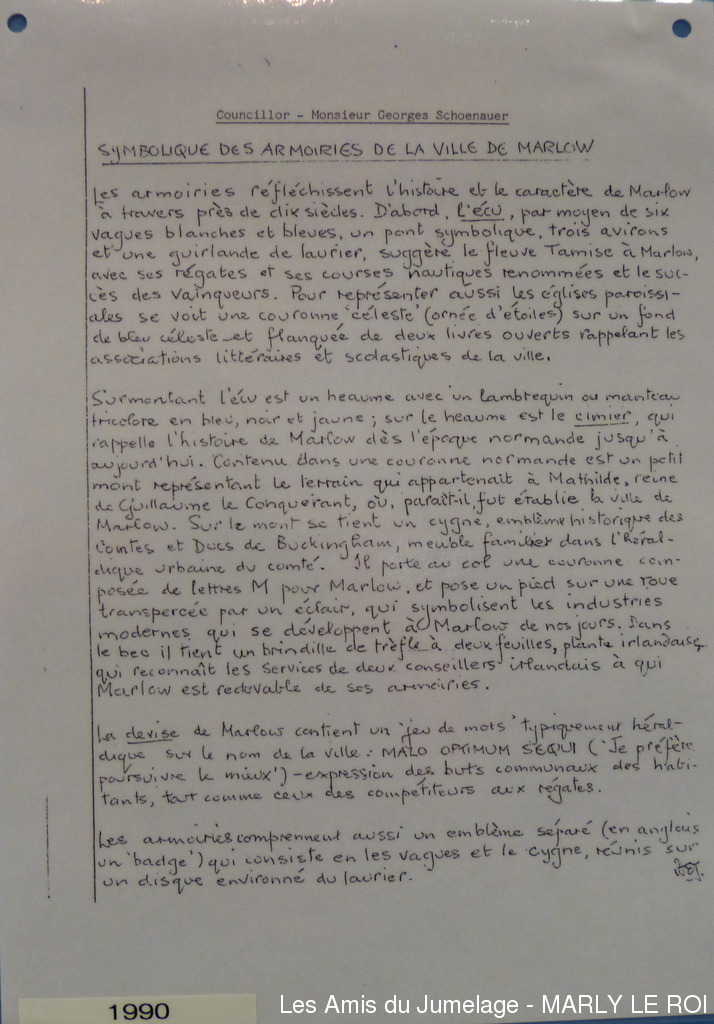 Councillor - Monsieur Georges Schoenauer
SYMBOLIQUE DES ARMOIRIES DE LA VILLE DE MARLOW
Les armoiries réfléchissent l'histoire et le caractère de Marlow
à travers près de dix siècles. D'abord, l'écu, par moyen de six
vagues blanches et bleues, un pont symbolique, trois avirons
et une guirlande de laurier, suggère le fleuve Tamise à Marlow,
avec ses régates et ses courses nautiques renommées et le suc-
cès des vainqueurs. Pour représenter aussi les églises paroissi-
ales se voit une couronne 'céleste' (ornée d'étoiles) sur un fond
de bleu céleste et flanquée de deux livres ouverts rappelant les
associations littéraires et scolastiques de la ville.
Surmontant l'écu est un heaume avec un lambrequin ou manteau
tricolore en bleu, noir et jaune ; sur le heaume est le cimier, qui
rappelle l'histoire de Marlow dès l'époque normande jusqu'à
aujourd'hui. Contenu dans une couronne normande est un petit
mont représentant le terrain qui appartenait à Mathilde, reine
de Guillaume le Conquérant, où, paraît-il, fut établie la ville de
Marlow. Sur le mont se tient un cygne, emblème historique des
Comtes et Ducs de Buckingham, meuble familier dans l'héral-
dique urbaine du comté. Il porte au col une couronne com-
posée de lettres M pour Marlow, et pose un pied sur une roue
transpercée par un éclair, qui symbolisent les industries
modernes qui se développent à Marlow de nos jours. Dans
le bec il tient un brindille de trèfle à deux feuilles, plante irlandaise,
qui reconnaît les services de deux conseillers irlandais à qui
Marlow est redevable de ses armoiries.
La devise de Marlow contient un 'jeu de mots' typiquement héral-
dique sur le nom de la ville : MALO OPTIMUM SEQUI ('Je préfère
poursuivre le mieux') - expression des buts communaux des habi-
tants, tout comme ceux des compétiteurs aux régates.
Les armoiries comprennent aussi un emblème séparé (en anglais
un 'badge') qui consiste en les vagues et le cygne, réunis sur
un disque environné du laurier.
1990
Les Amis du Jumelage - MARLY LE ROI